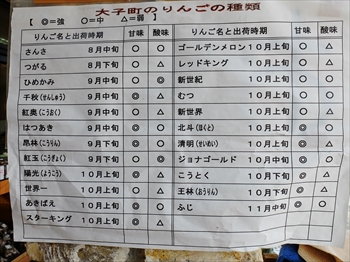 大子町のりんごの種類
【 ◎=強 ○=中 △=弱 】
りんご名と出荷時期 甘味 酸味
さんさ 8月中旬 ○ ○
つがる 8月下旬 ○ △
ひめかみ 9月上旬 ○ ○
千秋(せんしゅう) 9月中旬 ◎ ○
紅奥(こうおく) 9月中旬 ○ △
はつあき 9月中旬 ◎ ○
昂林(こうりん) 9月下旬 ◎ ○
紅玉(こうぎょく) 9月下旬 ○ ◎
陽光(ようこう) 10月上旬 ◎ △
世界一 10月上旬 ○ △
あきばえ 10月上旬 ◎ ○
スターキング 10月上旬 ◎ △
りんご名と出荷時期 甘味 酸味
ゴールデンメロン 10月上旬 ○ ○
レッドキング 10月上旬 ○ △
新世紀 10月上旬 ○ ○
むつ 10月上旬 ○ ○
新世界 10月上旬 ○ △
北斗(ほくと) 10月上旬 ◎ ○
清明(せいめい) 10月上旬 ◎ △
ジョナゴールド 10月中旬 ○ ◎
こうとく 10月上旬 ◎ △
王林(おうりん) 10月下旬 ◎ △
ふじ 11月中旬 ◎ ○